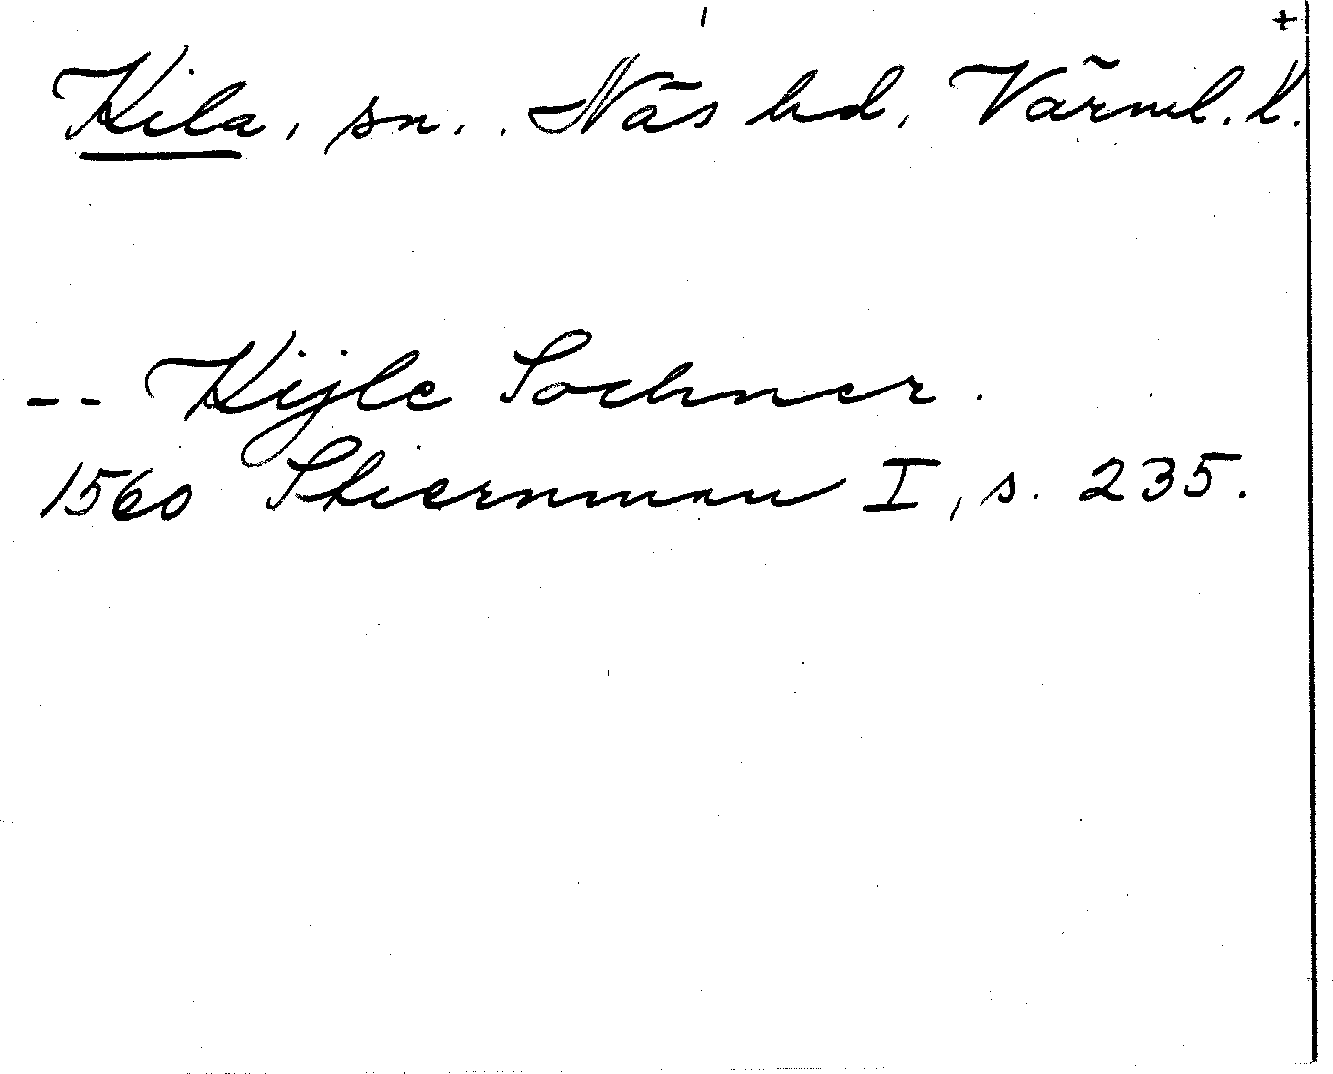 +
Kila, sn., Näs hd, Värml. l.
-- Kijle Sochner.
1560 Stiernman I, s. 235.